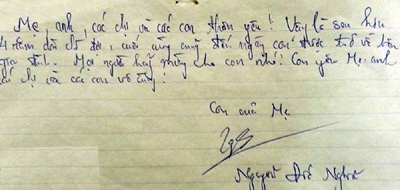 Mẹ, anh, các chị và các con thân yêu! Vậy là sau hơn
4 năm dài chờ đợi, cuối cùng cũng đến ngày con được trở về bên
gia đình. Mọi người hãy mừng cho con nhé! Con yêu Mẹ, anh
chị và các con vô cùng!
Con của Mẹ
Nguyễn Đức Nghĩa